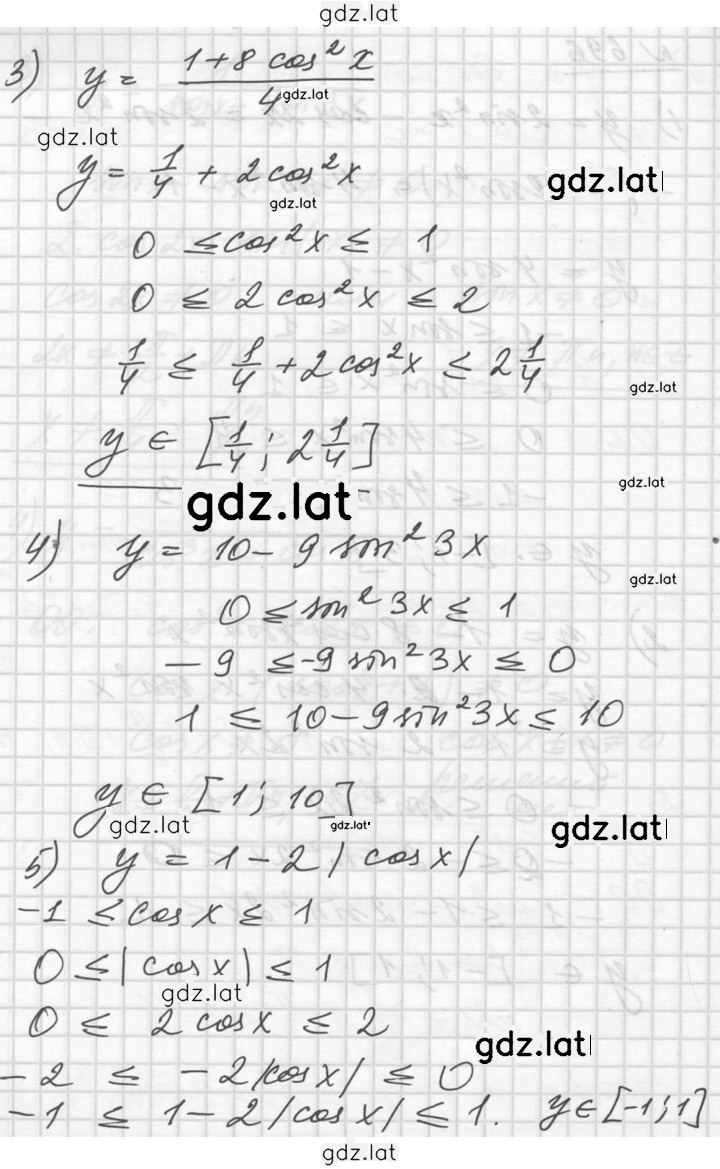 gdz.lat
3) y = (1+8 cos²x)/4
gdz.lat
gdz.lat
y = 1/4 + 2 cos²x
gdz.lat
gdz.lat
0 ≤ cos²x ≤ 1
0 ≤ 2 cos²x ≤ 2
1/4 ≤ 1/4 + 2 cos²x ≤ 2 1/4
gdz.lat
y ∈ [1/4; 2 1/4]
gdz.lat
gdz.lat
4) y = 10 - 9 sin² 3x
gdz.lat
0 ≤ sin² 3x ≤ 1
-9 ≤ -9 sin² 3x ≤ 0
1 ≤ 10 - 9 sin² 3x ≤ 10
y ∈ [1; 10]
gdz.lat
gdz.lat
gdz.lat
5) y = 1 - 2 |cos x|
-1 ≤ cos x ≤ 1
0 ≤ |cos x| ≤ 1
gdz.lat
0 ≤ 2 cos x ≤ 2
gdz.lat
-2 ≤ -2 |cos x| ≤ 0
-1 ≤ 1 - 2 |cos x| ≤ 1. y ∈ [-1; 1]
gdz.lat